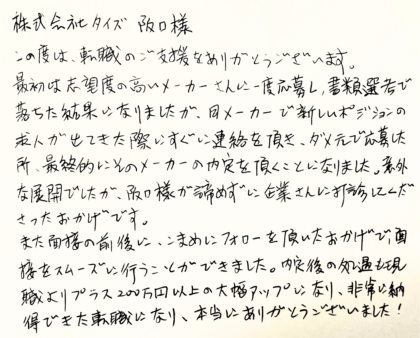 株式会社タイズ 阪口様
この度は、転職のご支援をありがとうございます。
最初は志望度の高いメーカーさんに一度応募し、書類選考で
落ちた結果になりましたが、同メーカーで新しいポジションの
求人が出てきた際にすぐに連絡を頂き、ダメ元で応募した
所、最終的にそのメーカーの内定を頂くことになりました。意外
な展開でしたが、阪口様が諦めずに企業さんに打診してくだ
さったおかげです。
また面接の前後に、こまめにフォローを頂いたおかげで、面
接をスムーズに行うことができました。内定後の処遇も現
職よりプラス200万円以上の大幅アップになり、非常に納
得できた転職になり、本当にありがとうございました!